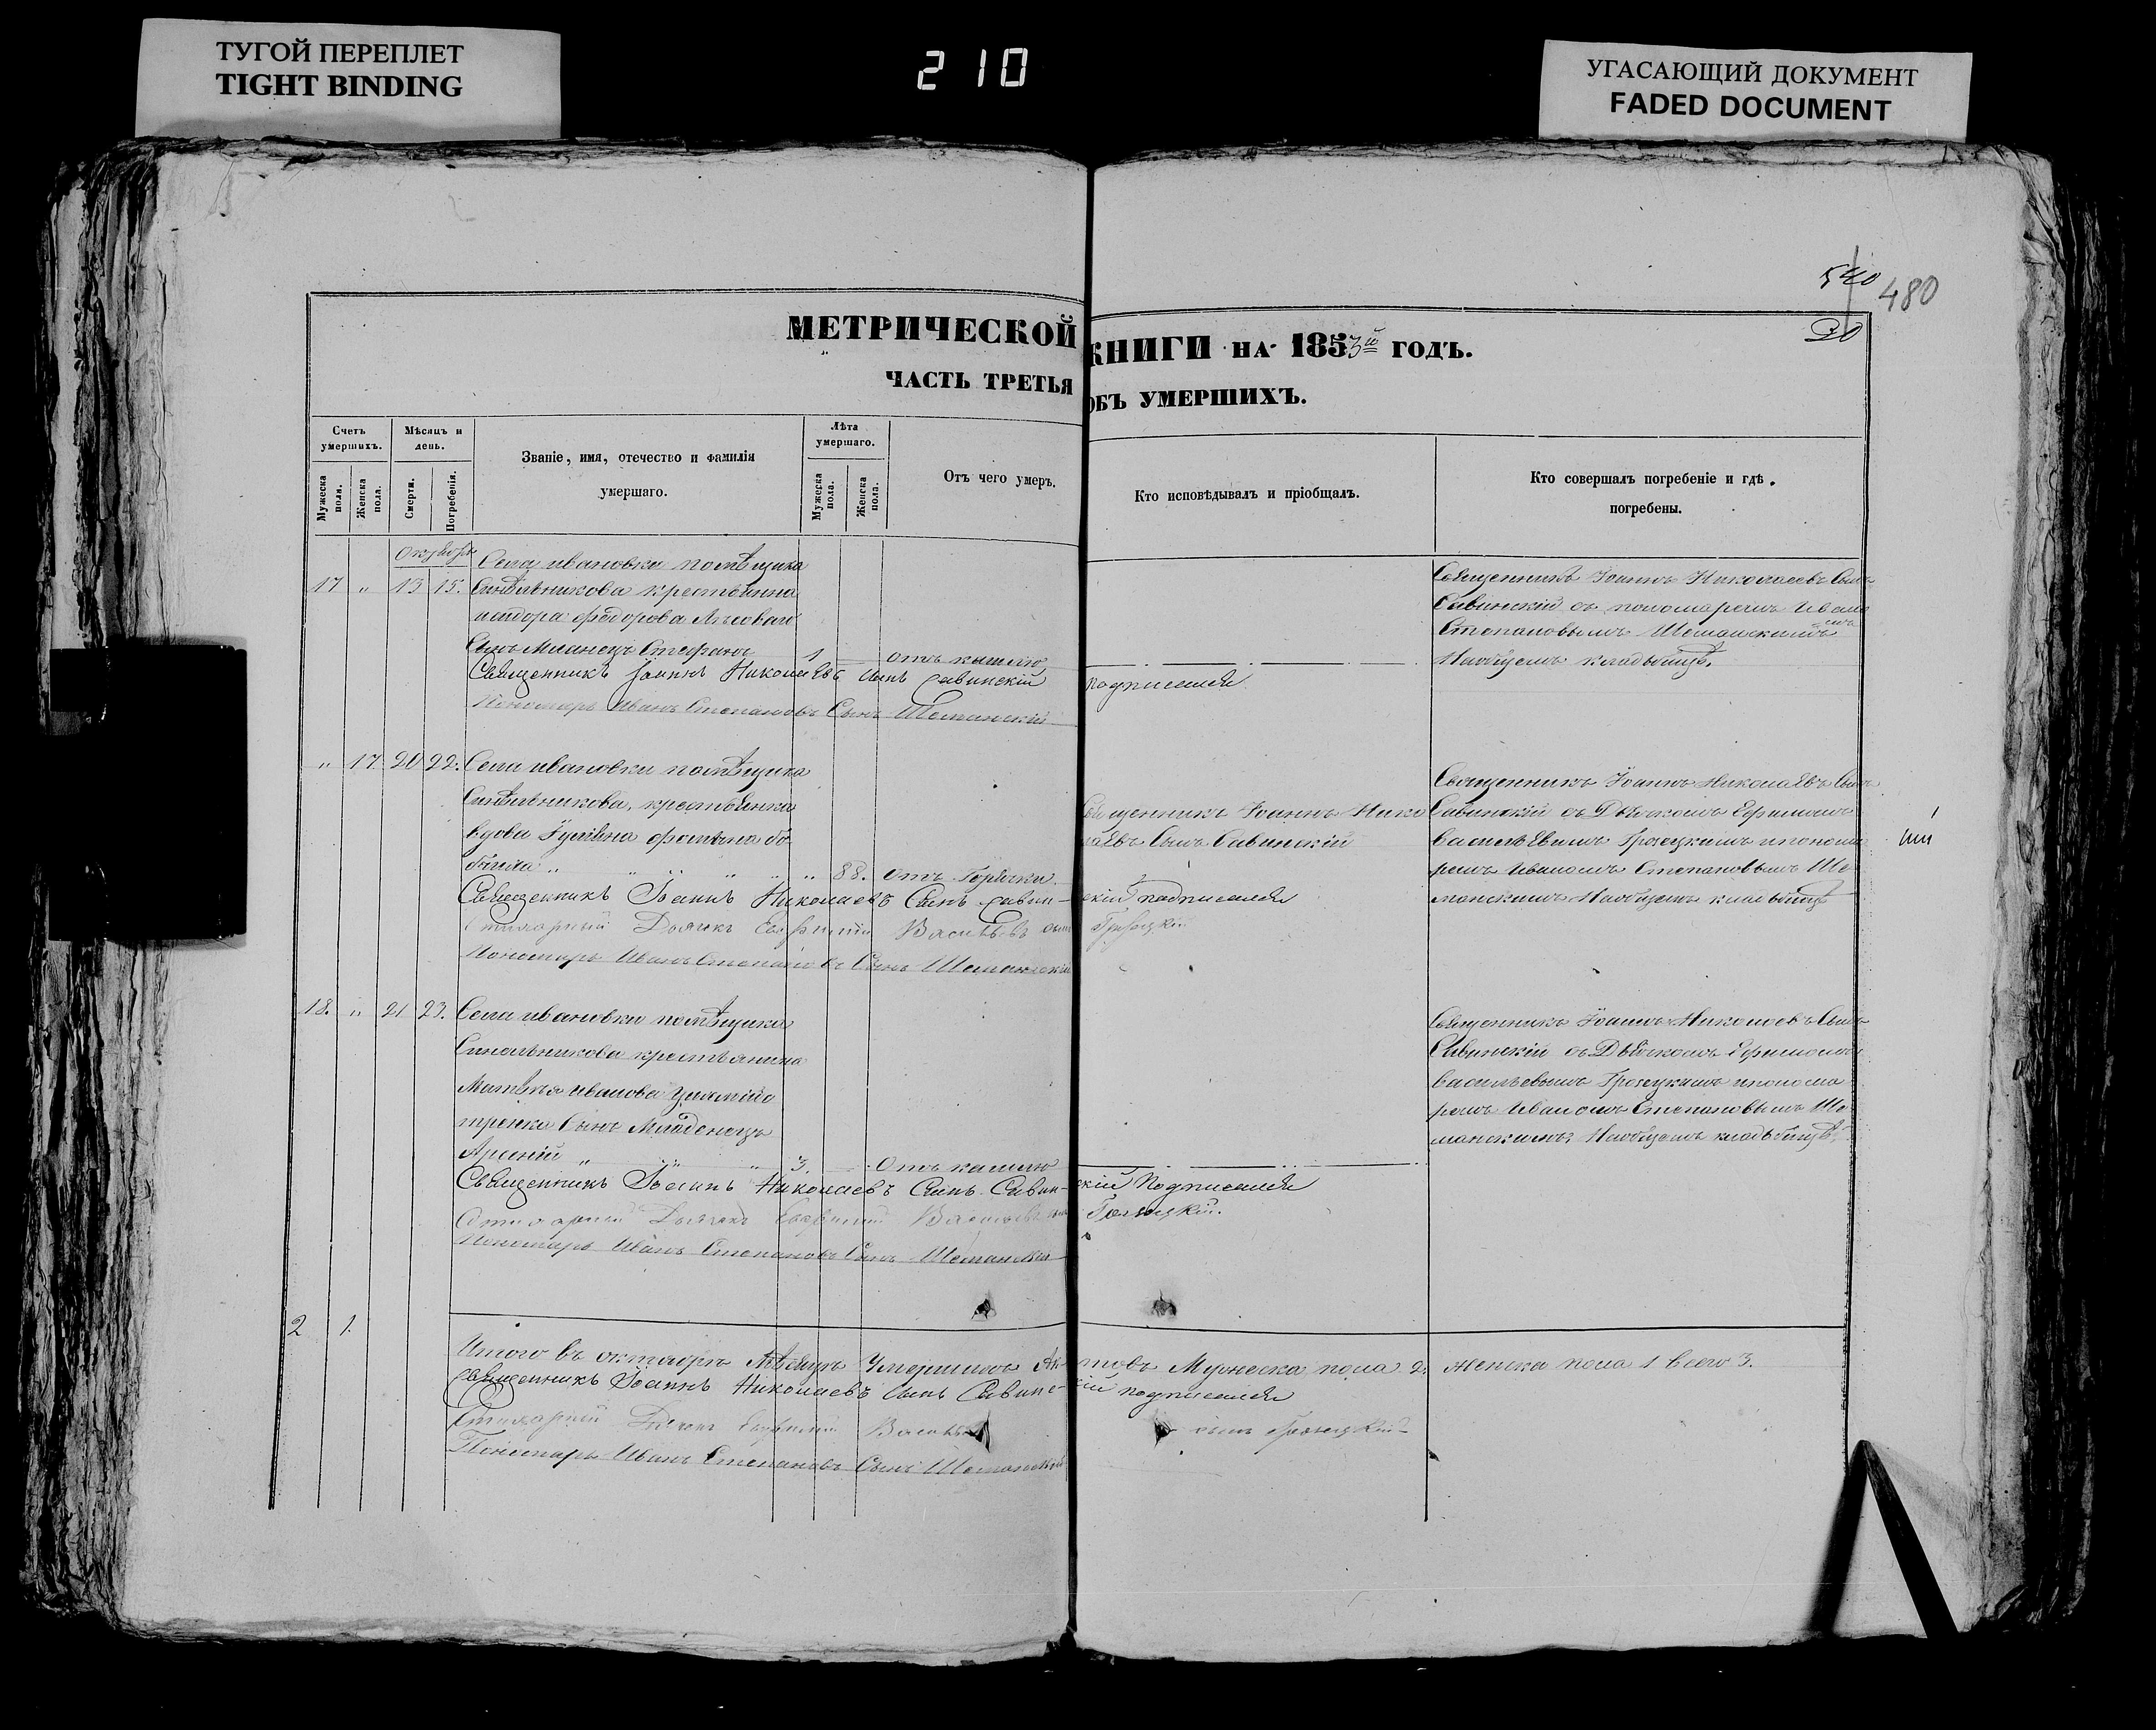 ТУГОЙ ПЕРЕПЛЕТ
TIGHT BINDING
210
УГАСАЮЩИЙ ДОКУМЕНТ
FADED DOCUMENT
480
20
МЕТРИЧЕСКОЙ КНИГИ НА 1853й ГОДЪ.
ЧАСТЬ ТРЕТЬЯ ОБЪ УМЕРШИХЪ.
Счетъ умершихъ.
Мужеска пола.
Женска пола.
Мѣсяцъ и день.
Смерти.
Погребенія.
Званіе, имя, отечество и фамилія
умершаго.
Лѣта умершаго.
Мужеска пола.
Женска пола.
Отъ чего умеръ.
Кто исповѣдывалъ и пріобщалъ.
Кто совершалъ погребеніе и гдѣ
погребены.
17 " 13 15.
Села ивановки помѣщика
Синѣльникова
федорова
Сынъ Стефанъ 1 отъ кашлю
Священникъ Іоаннъ Николаевъ Сынъ
Савинскій съ пономаремъ Иваномъ
Степановымъ Шеманскимъ
Наобщемъ кладбищѣ.
Священникъ Іоаннъ Николаевъ Сынъ Савинскій подписался
Пономарь Иванъ Степановъ Сынъ Шеманскій
" 17. 20 22.
Села ивановки помѣщика
Синѣльникова, крестьянка
вдова
88. Отъ Горячки
Священникъ Іоаннъ Нико
лаевъ Сынъ Савинскій
Священникъ Іоаннъ Николаевъ Сынъ
Савинскій съ Дьячкомъ Ефимомъ
Василіевымъ и понома
ремъ Иваномъ Степановымъ Ше
манскимъ Наобщемъ кладбищѣ
Священникъ Іоаннъ Николаевъ Сынъ Савинскій подписался
Стихарный Дьячокъ Евфимій Васильевъ сынъ
Пономарь Иванъ Степановъ Сынъ Шеманскій
18. " 21 23.
Села ивановки помѣщика
Синельникова крестьянина
Матвѣя иванова
тренка Сынъ Младенецъ
Арсеній " " " 3. Отъ кашлю
Священникъ Іоаннъ Николаевъ Сынъ
Савинскій съ Дьячкомъ Ефимомъ
Васильевымъ и понома
ремъ Иваномъ Степановымъ Ше
манскимъ Наобщемъ кладбищѣ.
Священникъ Іоаннъ Николаевъ Сынъ Савинскій Подписался
Стихарный Дьячокъ Евфимій Васильевъ сынъ
Пономарь Иванъ Степановъ Сынъ Шеманскій
2 1.
Итого въ октябрѣ Мѣсяцѣ Умершихъ Актовъ Мужеска пола 2. женска пола 1 всего 3.
Священникъ Іоаннъ Николаевъ Сынъ Савинскій подписался
Стихарный Дьячокъ Евфимій Васильевъ сынъ
Пономарь Иванъ Степановъ Сынъ Шеманскій